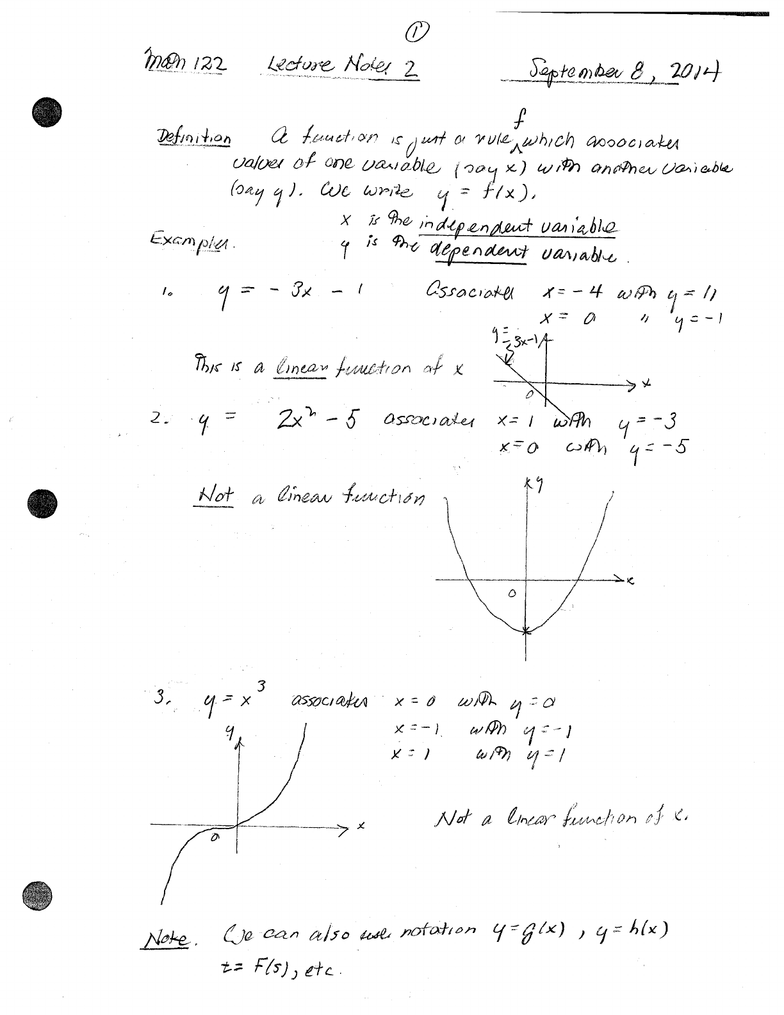 ①
Math 122 Lecture Notes 2 September 8, 2014
Definition A function is just a rule f which associates
values of one variable (say x) with another variable
(say y). We write y = f(x).
x is the independent variable
Examples. y is the dependent variable.
1. y = - 3x - 1 Associates x = -4 with y = 11
x = 0 " y = -1
y =
-3x-1
This is a linear function of x
x
0
2. y = 2x² - 5 associates x = 1 with y = -3
x = 0 with y = -5
Not a linear function
y
x
0
3. y = x³ associates x = 0 with y = 0
x = -1 with y = -1
x = 1 with y = 1
y
x
0
Not a linear function of x.
Note. We can also use notation y = g(x), y = h(x)
t = F(s), etc.